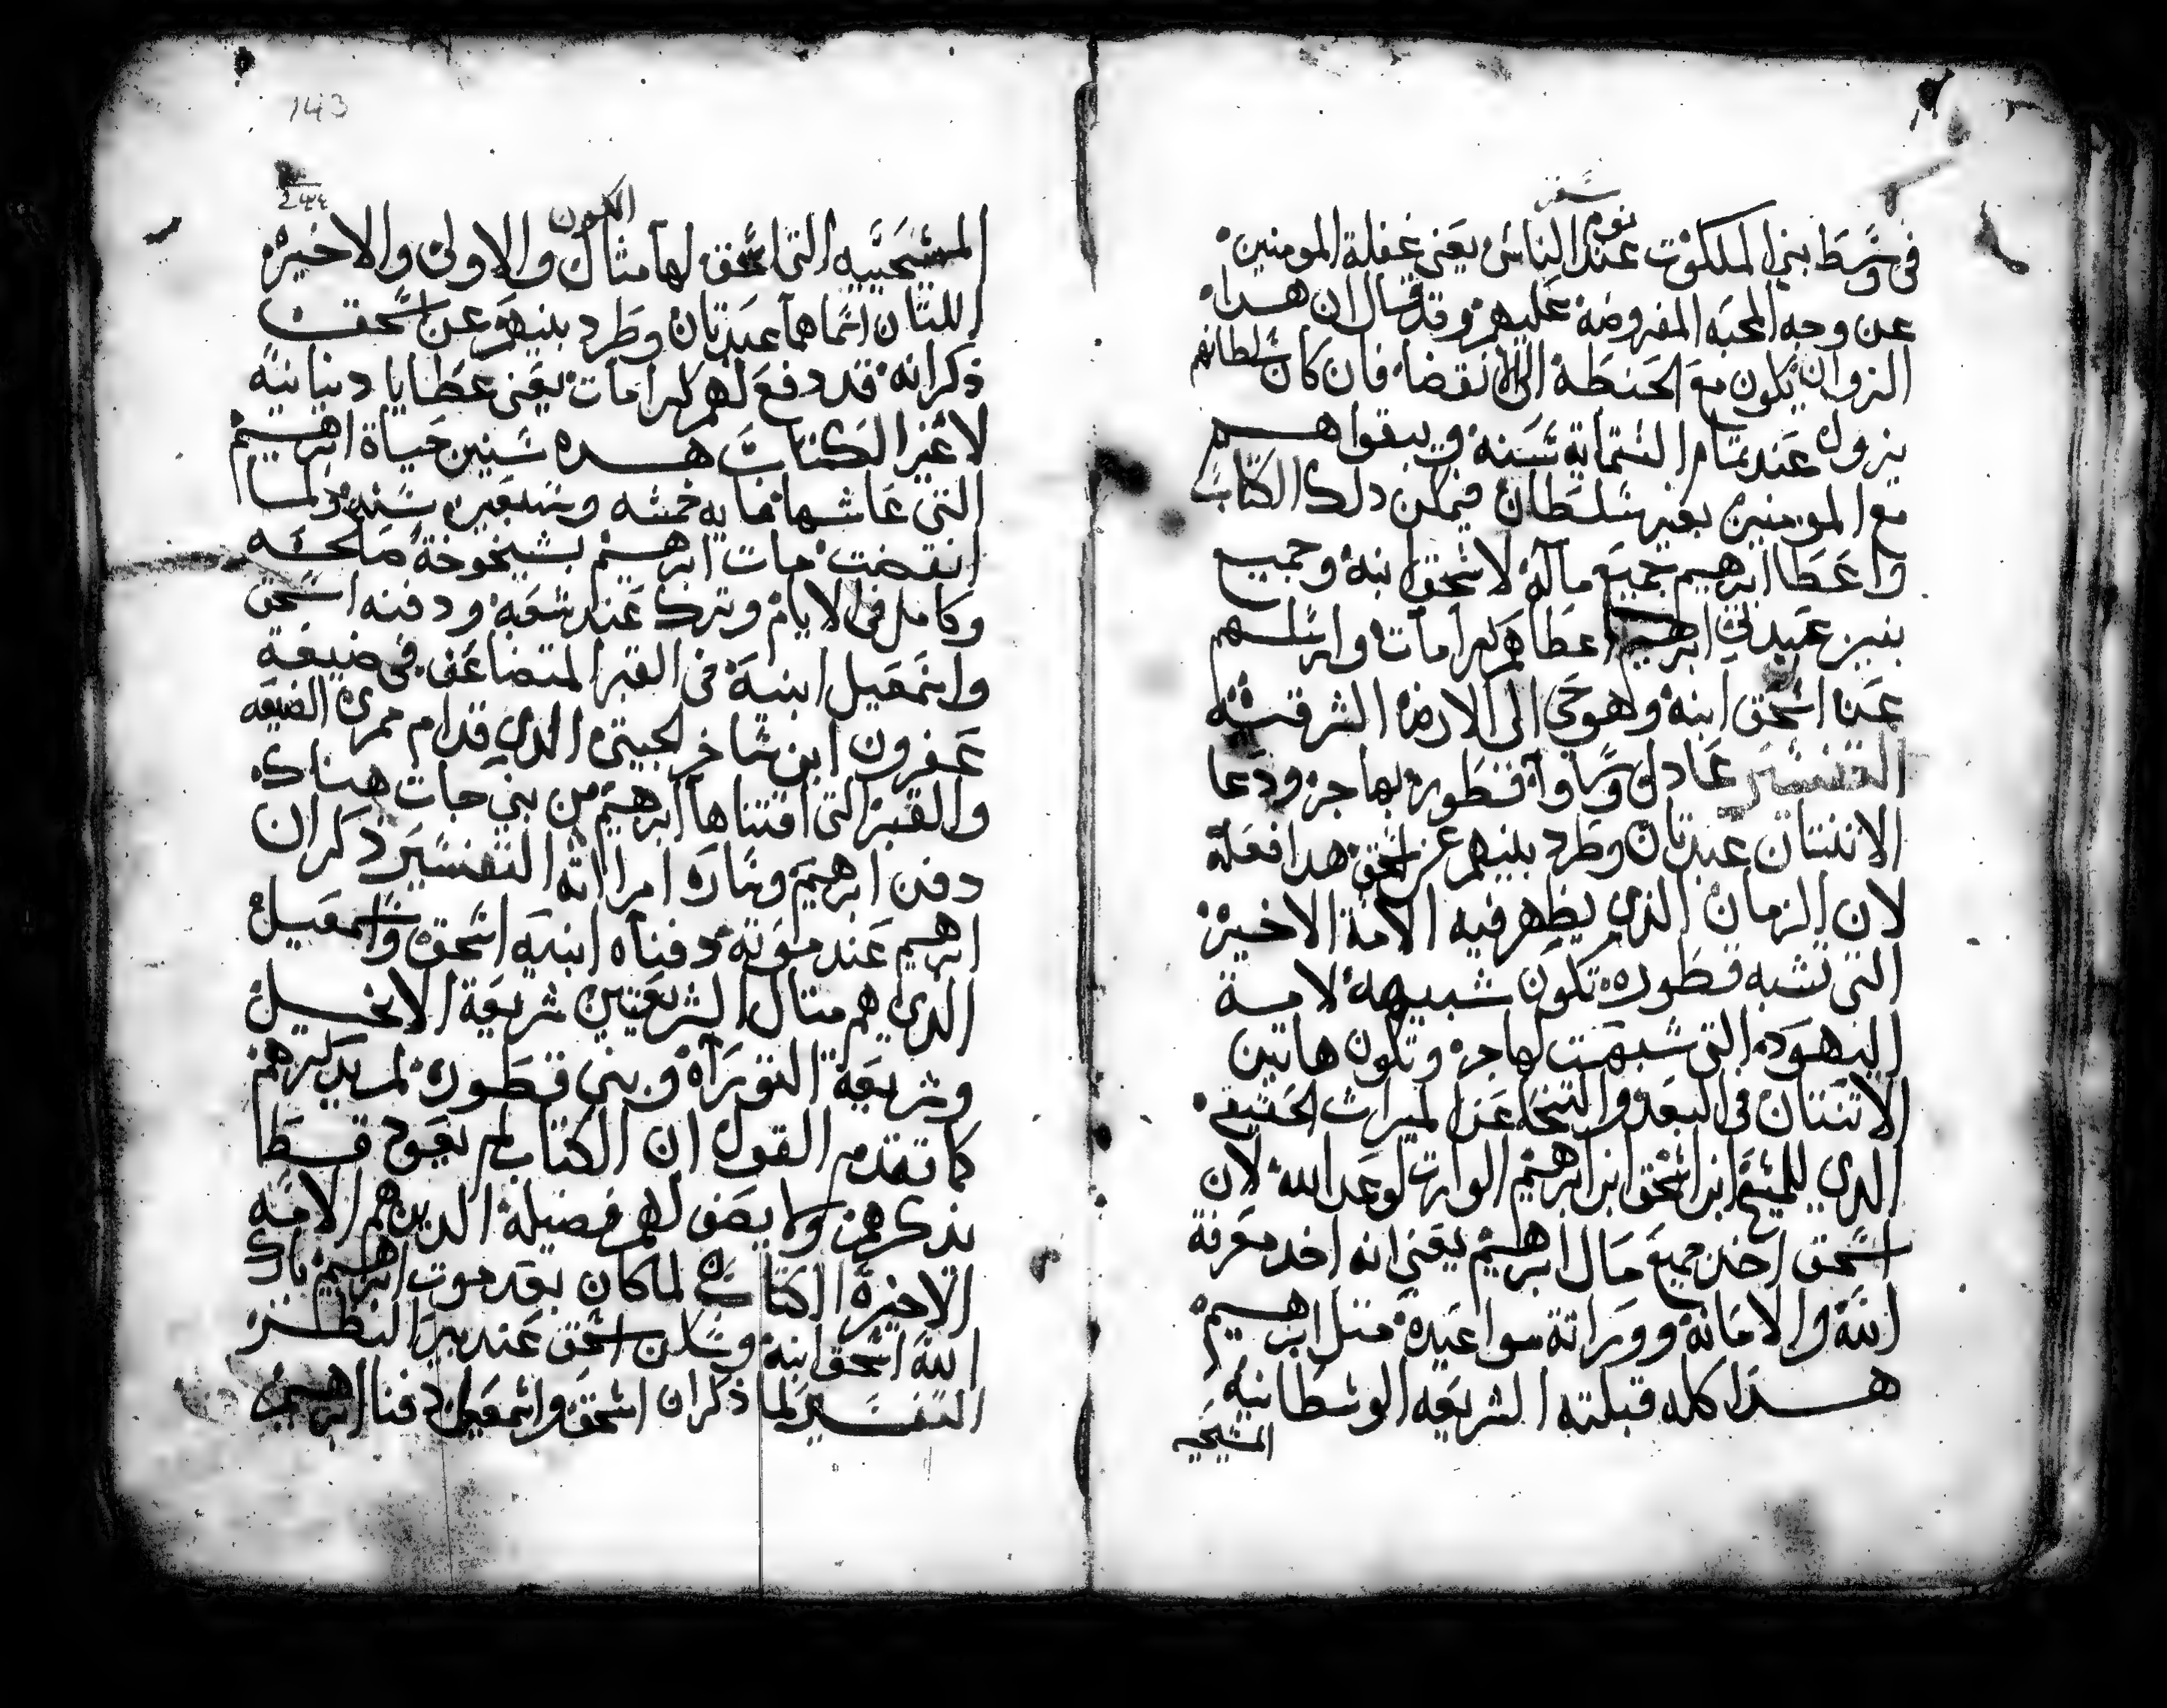 سفر
في وسط بني الملكوت عند نوم الناس يعني غفلة المومنين
عن وجه المحبه المفروضه عليهم وقد قال ان هدا
الزوان يكون مع الحنطة الى الانقضا فان كان سلطانهم
يزول عند تمام الستماية سنه ويبقوا هم
مع المومنين بغير سلطان فيمكن دلك الكتاب
واعطا ابرهيم جميع ماله لاسحق ابنه وجميع
بنين عبدتي ابرهيم اعطاهم كرامات وارسلهم
عن اسحق ابنه وهو حي الى الارض الشرقيه
التفسير عادل وساوا قنطوره بهاجر ودعا
الاتنتان عبدتان وطرد بنيهم عن اسحق هدا فعله
لان الزمان الدي يظهر فيه الامة الاخيرة
التي تشبه قطوره تكون شبيهه لامة
اليهود التي شبهت لهاجر وتكون هاتين
الاتنتان في البعد والتنحا عن الميرات الحقيقي
الدي للمسيح ابن اسحق ابن ابرهيم الوارت لوعد الله لان
اسحق اخد جميع مال ابرهيم يعني انه اخد معرفة
الله والامانة ووراتة مواعيده متل ابرهيم
هدا كله قبلته الشريعه الوسطانيه
المسيحيه
143
الكون
المسيحييه التي اسحق لها مثال والاولى والاخيره
اللتان اسماهما عبدتان وطرد بنيهم عن اسحق
ذكر انه قد دفع لهم كرامات يعني عطايا دنيانيه
لا غير الكتاب هده سنين حياة ابرهيم
التي عاشها مايه خمسه وسبعين سنه ولما
انقضت مات ابرهيم بشيخوخة صالحه
وكامل في الايام وترك عند شعبه ودفنه اسحق
واسمعيل ابنيه في القبر المتضاعف في ضيعة
عفرون ابن صاخر الحيتي الدي قدام ممرى الضيعه
والقبر التي اقتناها ابرهيم من بني حات هناك
دفن ابرهيم وساره امراته التفسير دكر ان
ابرهيم عند موته دفناه ابنيه اسحق واسمعيل
الدي هم متال الشريعتين شريعة الانجيل
وشريعة التوراه وبني قطوره لم يدكرهم
كما تقدم القول ان الكتاب لم يعود قط
يدكرهم ولا يصف لهم فضيلة الدين هم الامه
الاخيرة الكتاب لما كان بعد موت ابرهيم بارك
الله اسحق ابنه وسكن اسحق عند بير النظر
التفسير لما ذكر ان اسحق واسمعيل دفنا ابرهيم